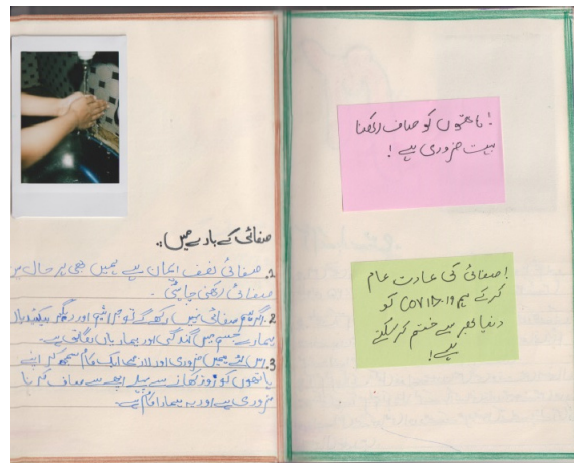 صفائی کے بارے میں:
1. صفائی نصف ایمان ہے ہمیں ہر حال میں
صفائی رکھنی چاہئیے۔
2. اگر ہم صفائی نہیں رکھے گے تو جراثیم اور دیگر
ہمارے جسم میں گندگی اور بیماریاں لگاتی ہے۔
3. اس لئے ہمیں ضروری اور لازمی ایک کام سمجھ کر اپنے
ہاتھوں کو روز کھانے سے پہلے اچھے سے صاف کرنا
ضروری ہے اور یہ ہمارا کام ہے۔
! ہاتھوں کو صاف رکھنا
بہت ضروری ہے !
! صفائی کی عادت عام
کرکے ہم COVID-19 کو
دنیا بھر سے ختم کر سکتے
ہے!